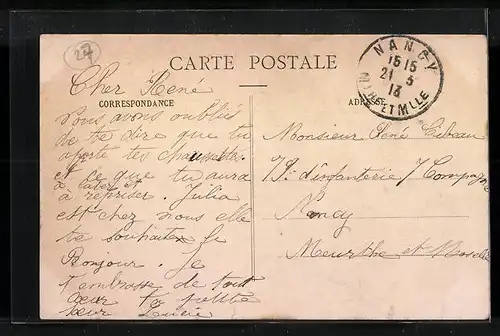 27
CARTE POSTALE
NANCY
15 15
21 5
13
CORRESPONDANCE
ADRESSE
Cher René
Vous avons oubliés
de te dire que tu
aporte tes chaussettes
et ce que tu aura
a laver et
à repriser. Julia
est chez nous elle
te souhaite le
Bonjour. Je
t'embrasse de tout
cœur ta petite
sœur Lucie
Monsieur René
d'infanterie 7 Compagnie
Nancy
Meurthe et Moselle